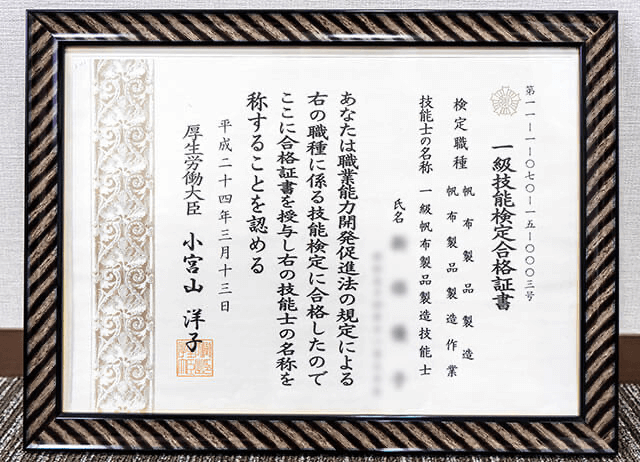 第一一-一-〇七〇-一五-〇〇〇三号
一級技能検定合格証書
検定職種 帆布製品製造
帆布製品製造作業
技能士の名称 一級帆布製品製造技能士
氏名
あなたは職業能力開発促進法の規定による
右の職種に係る技能検定に合格したので
ここに合格証書を授与し右の技能士の名称を
称することを認める
平成二十四年三月十三日
厚生労働大臣 小宮山 洋子